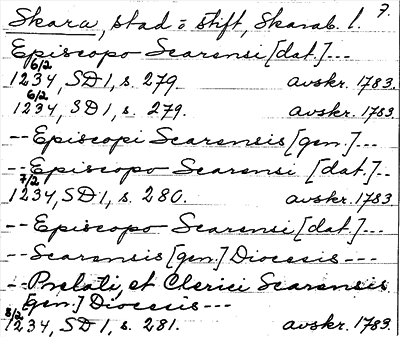 7.
Skara, stad o stift, Skarab. l.
Episcopo Scarensi [dat.]---
6/2
1234, SD 1, s. 279. avskr. 1783.
6/2
1234, SD 1, s. 279. avskr. 1783.
-- Episcopi Scarensis [gen.]---
-- Episcopo Scarensi [dat.]--
7/2
1234, SD 1, s. 280. avskr. 1783.
-- Episcopo Scarensi [dat.]---
-- Scarensis [gen.] Diocesis ---
-- Prelati, et Clerici Scarensis
[gen.] Diocesis ---
8/2
1234, SD 1, s. 281. avskr. 1783.